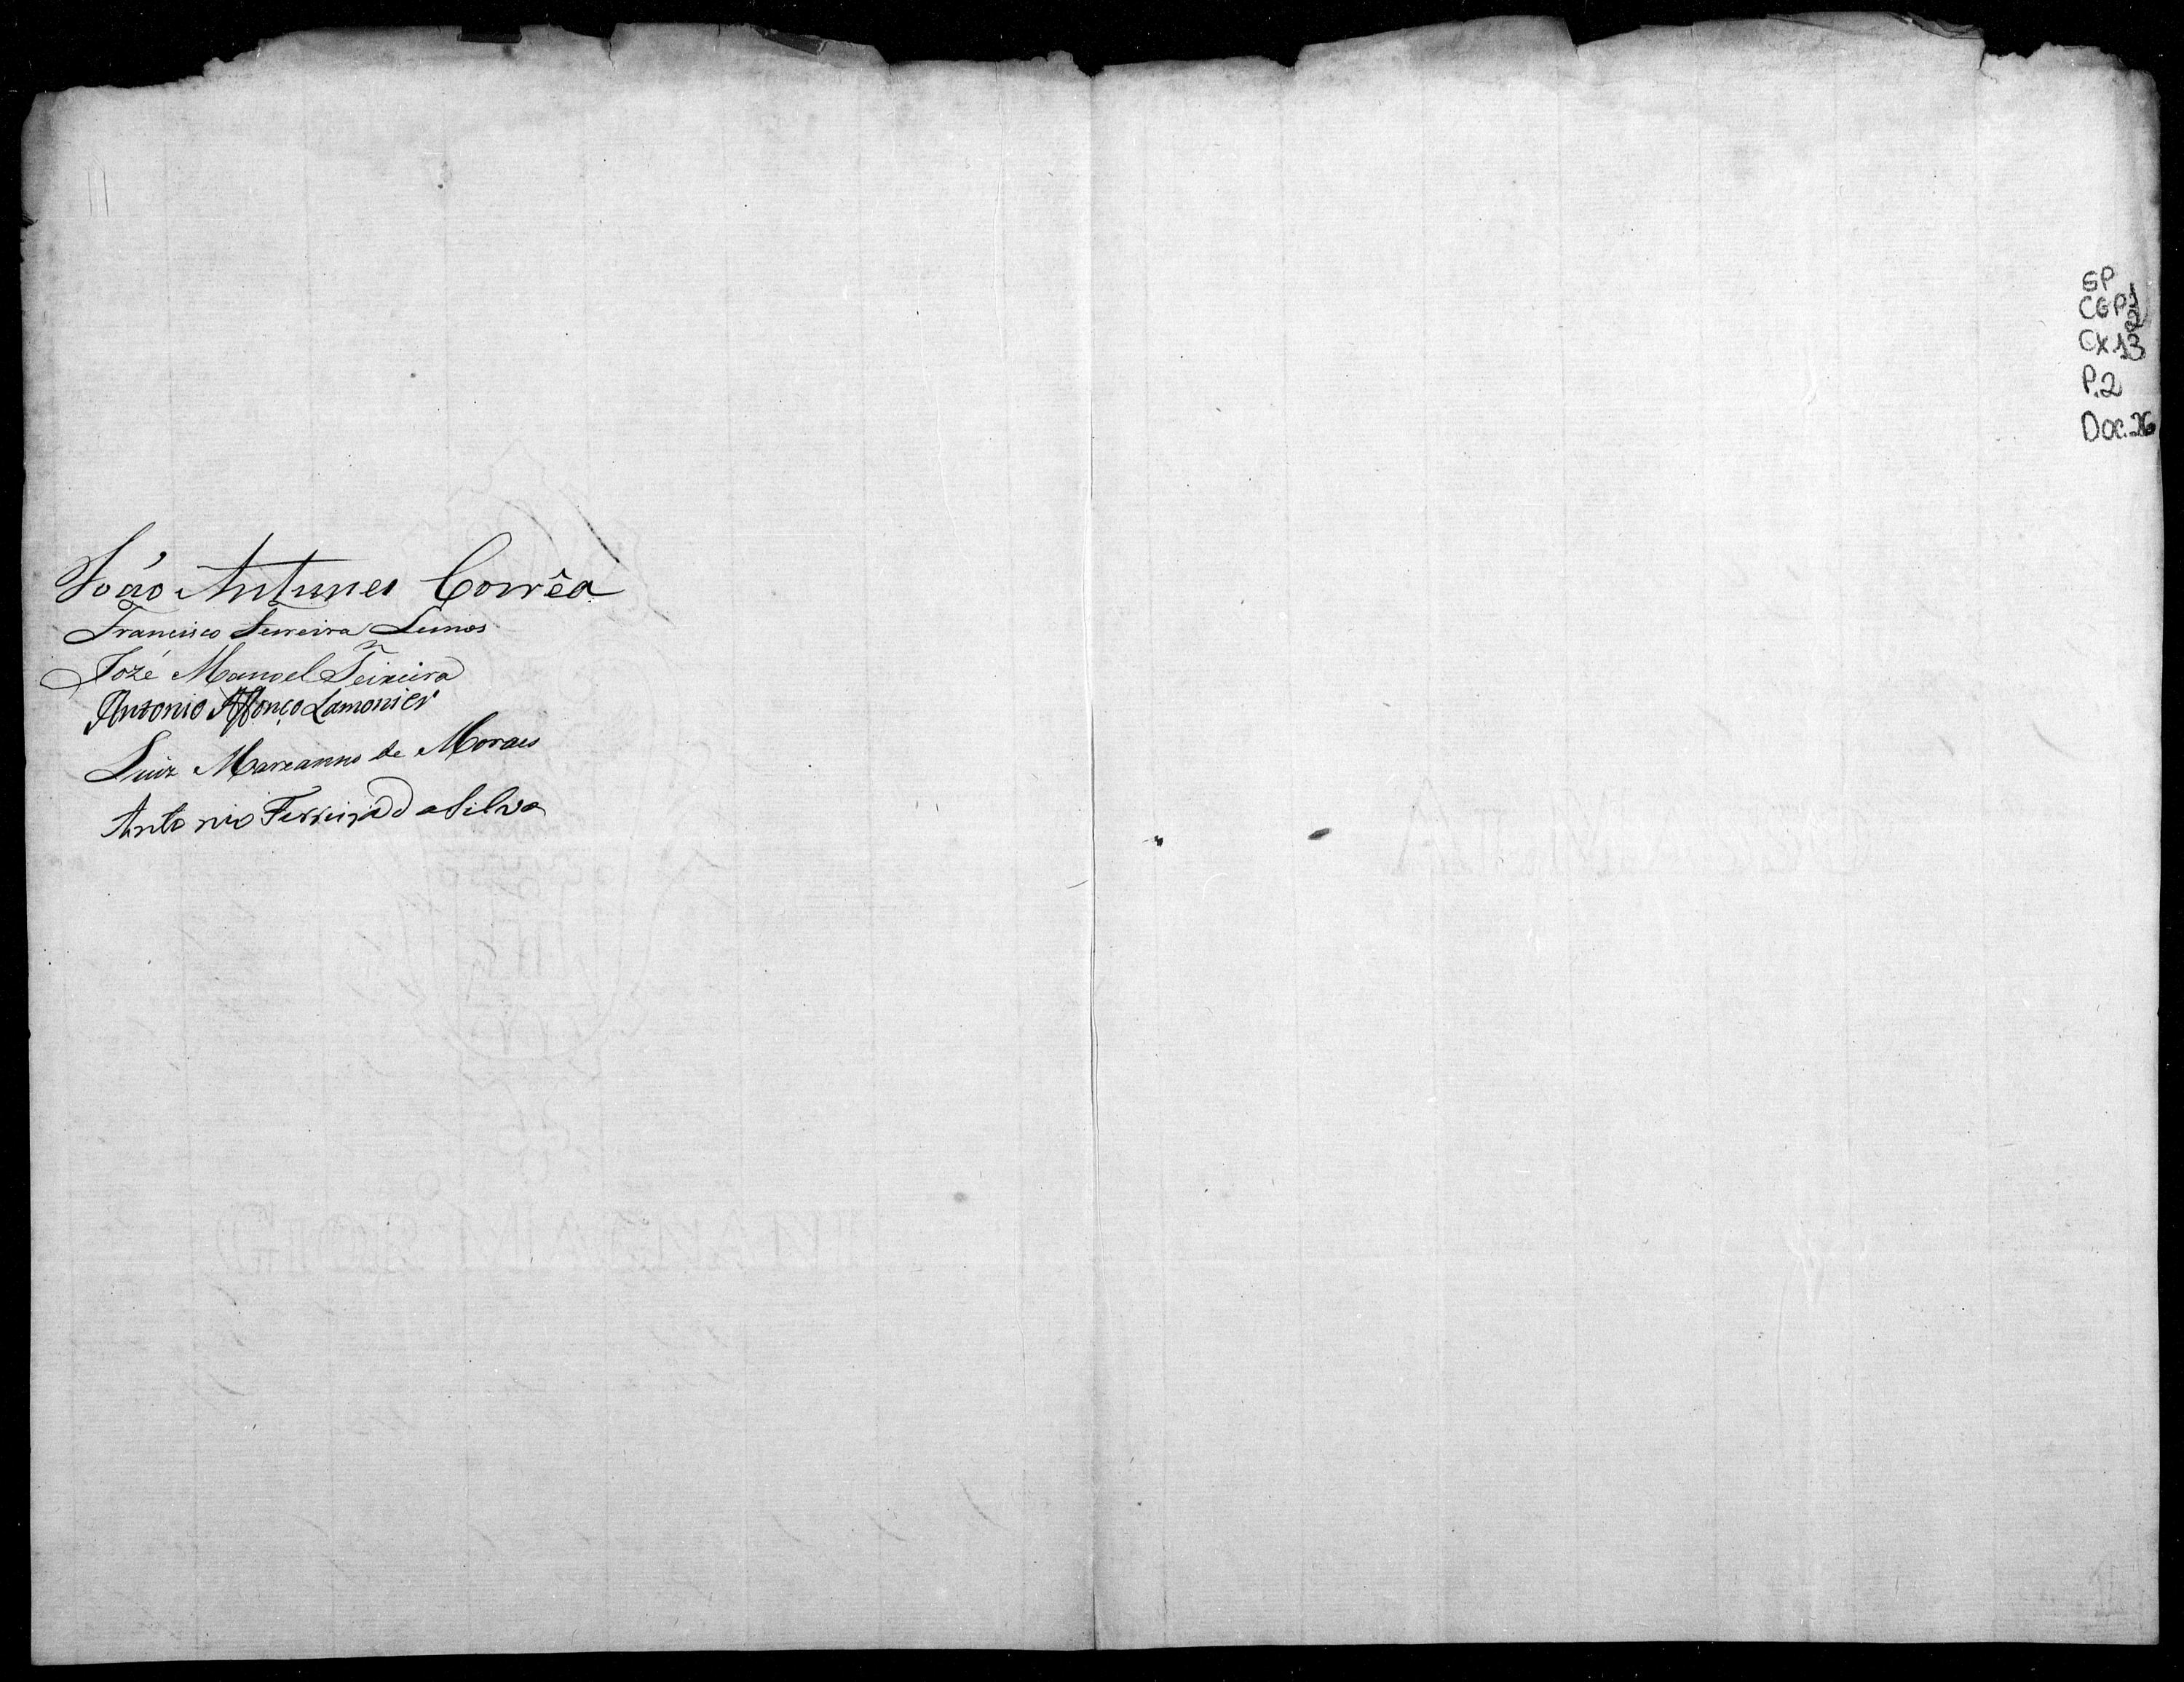 João Antunes Corrêa
Francisco Ferreira Lemos
Jozé Manoel Teixeira
Antonio Affonço Lamonier
Luiz Marianno de Moraes
Antonio Ferreira da Silva
GP
CGP 1/2
CX.13
P.2
Doc.26